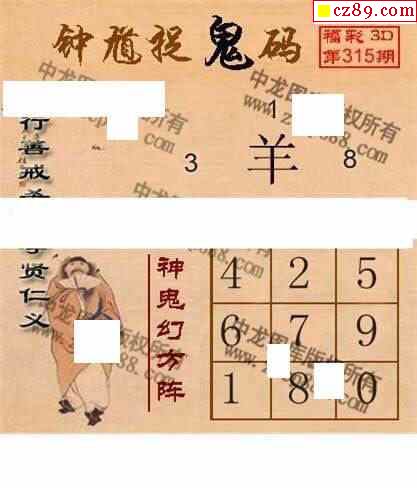 cz89.com
钟馗捉鬼码
福彩3D
第315期
1
3
羊
8
行善戒杀
贤仁义
神鬼幻方阵
4 2 5
6 7 9
1 8 0
中龙图库版权所有